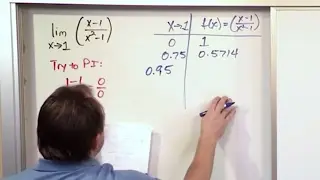 lim (x-1/x²-1)
x→1
Try to PI:
1-1 0
0
x→1 f(x)=(x-1/x²-1)
0 1
0.75 0.5714
0.95